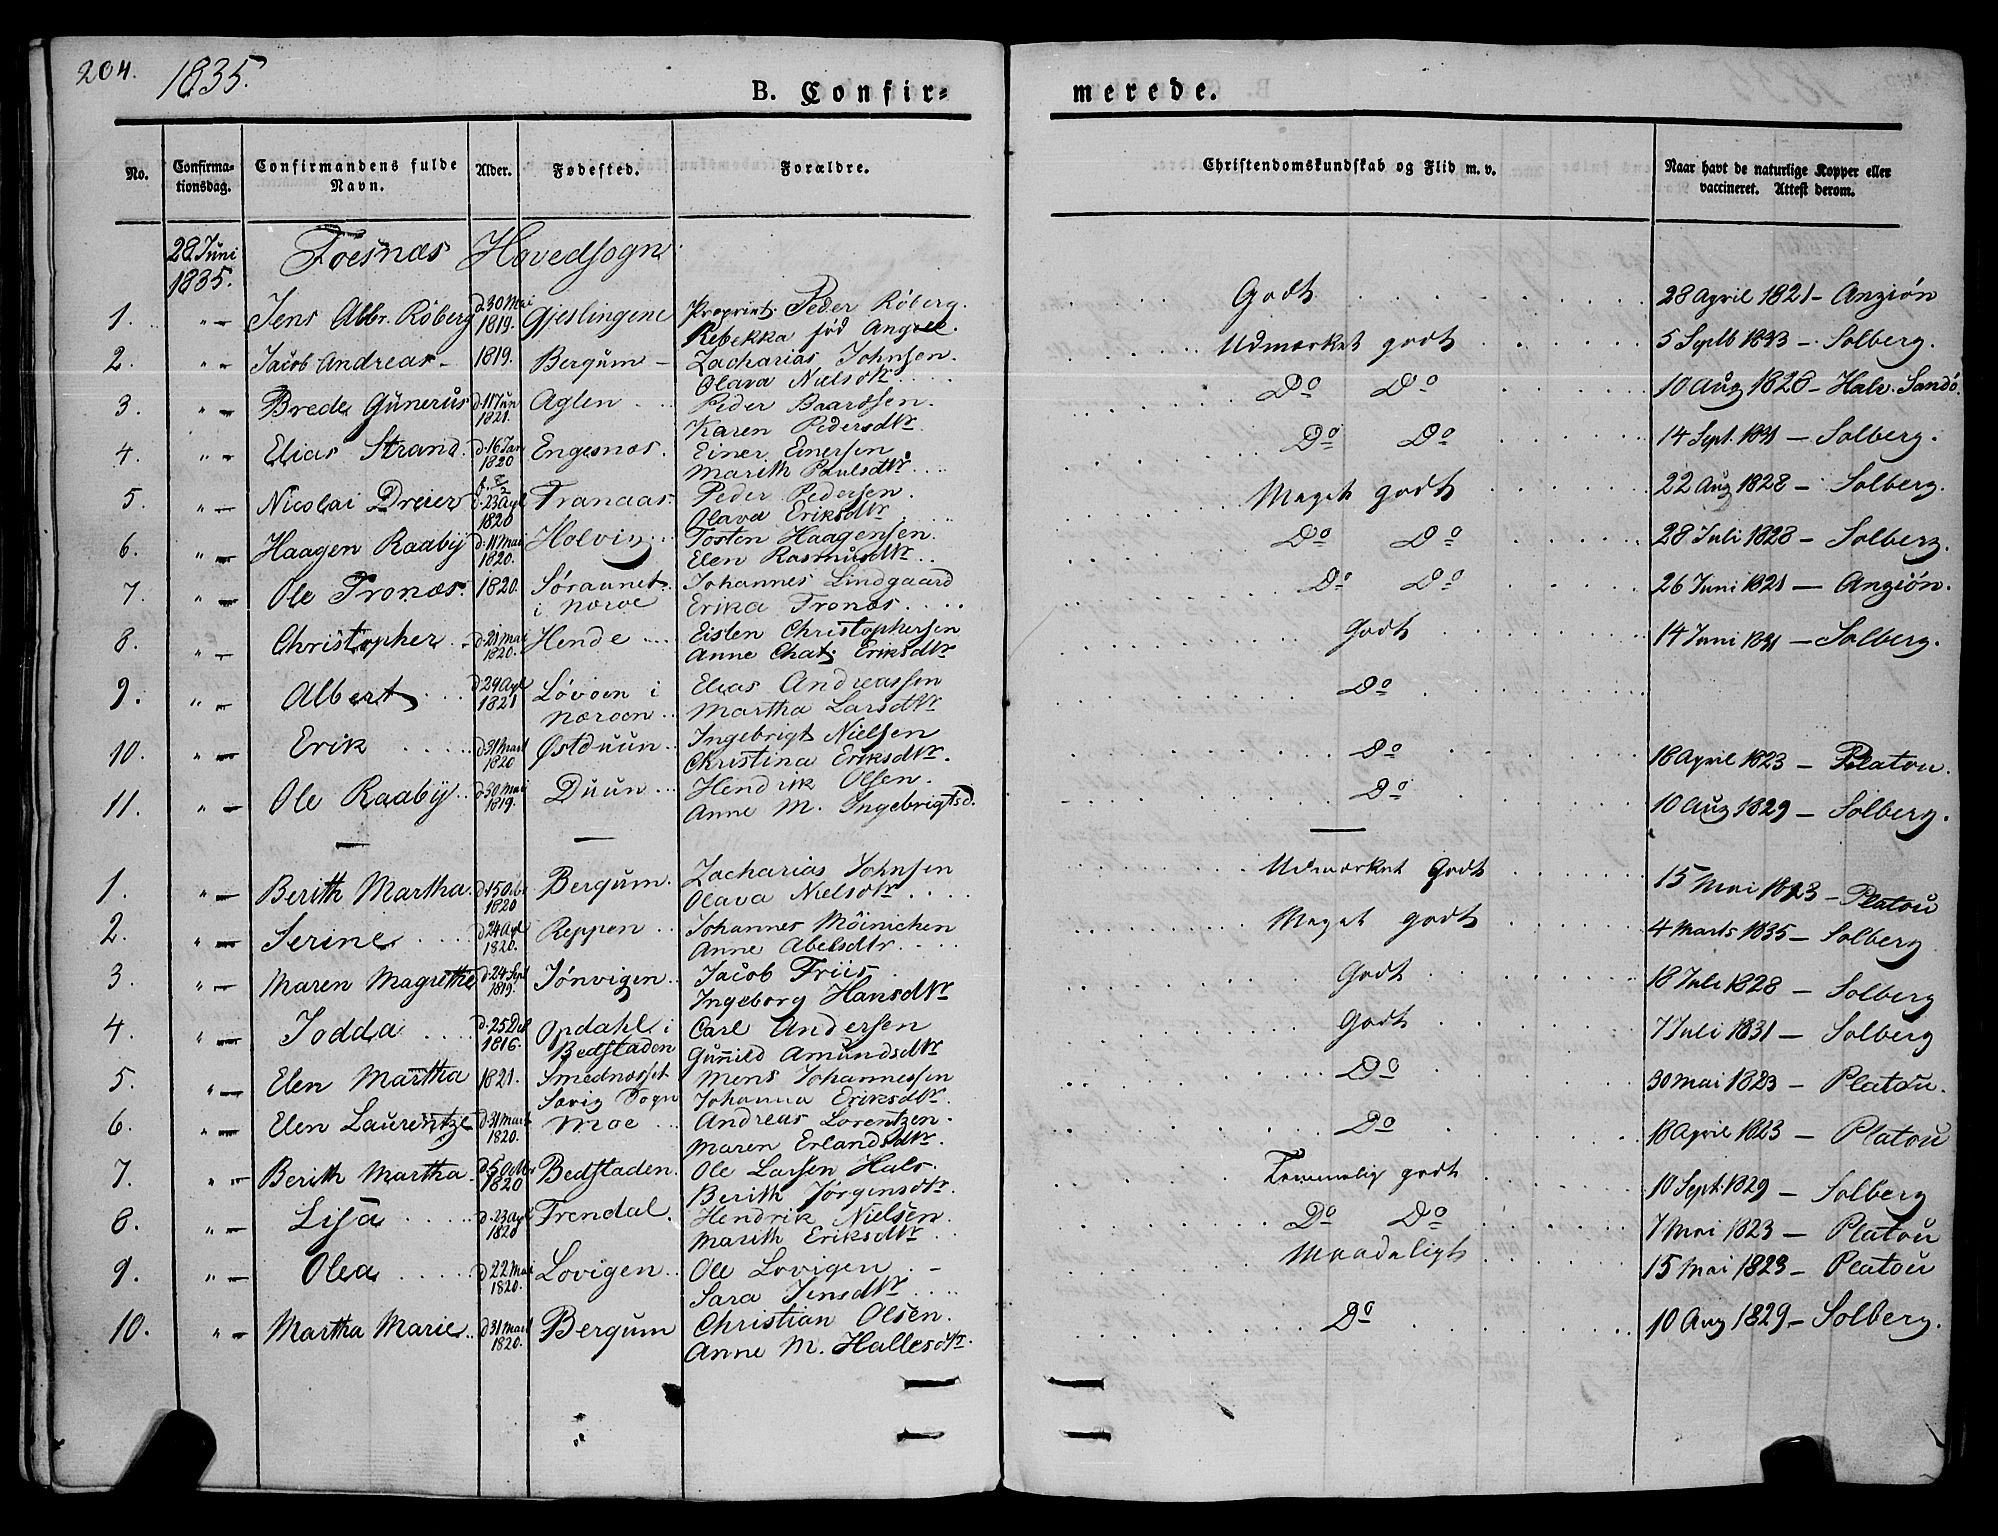 204. 1835.
B. Confirmerede.
No. Confirmationsdag. Confirmandens fulde Navn. Alder. Fødested. Forældre. Christendomskundskab og Flid m. v. Naar havt de naturlige Kopper eller vaccineret. Attest derom.
28 Juni 1835. Foesnæs Hovedsogn
1. " — Jens Albr. Röberg d. 30 Mai 1819. Gjeslingene Proprint. Peder Röberg. Rebekka fød Angell. Godt 28 April 1821 — Anziön
2. " — Jacob Andreas — 1819. Bergum — Zacharias Johnsen. Olava Nielsdtr. Udmærket godt 5 Septb 1833 — Solberg.
3. " — Brede Gunerus d. 11 Jun 1821. Aglen Peder Baardsen. Karen Pedersdtr. Do Do 10 Aug 1828 — Halv. Sandö.
4. " — Elias Strand. d. 16 Jan 1820 Engesnæs. Einer Einersen Marith Paulsdtr. Do Do 14 Sept. 1831 — Solberg.
5. " — Nicolai Dreier d. 23 Apl 1820 Tranaas. Peder Pedersen. Olava Eriksdtr. Meget godt 22 Aug 1828 — Solberg.
6. " — Haagen Raaby d. 11 Mai 1820. Holvin Tosten Haagensen. Elen Rasmusdtr. Do Do 28 Juli 1828 — Solberg.
7. " — Ole Tronæs. 1820. Søraunet i Nøroe Johannes Lindgaard Erika Tronæs. Do Do 26 Juni 1821 — Anziön.
8. " — Christopher d. 28 Mai 1820. Hende Eisten Christophersen Anne Chat. Eriksdtr Godt 14 Juni 1831 — Solberg.
9. " — Albert d. 29 Apl 1821 Løvøen i Nærøen Elias Andreassen Martha Larsdtr Do
10. " — Erik d. 31 Mart 1820 Østduun Ingebrigt Nielsen Christina Eriksdtr. Do 18 April 1823 — Platou.
11. " — Ole Raaby d. 30 Mai 1819. Duun Hendrik Olsen. Anne M. Ingebrigtsd. Do 10 Aug 1829 — Solberg.
1. " — Berith Martha. 1820 Bergum. Zacharias Johnsen Olava Nielsdtr. Udmærket Godt 15 Mai 1823 — Platou
2. " — Serine d. 24 Apl 1820. Reppen Johannes Möinichen Anne Abelsdtr. Meget godt 4 Marts 1835 — Solberg
3. " — Maren Magrethe d. 24 Sept 1819. Jönvigen Jacob Friis Ingeborg Hansdtr Godt 18 Juli 1828 — Solberg
4. " — Jodda d. 25 Det 1816. Opdahl i Bedstaden Carl Andersen Gunnild Amundsdtr Godt 7 Juli 1831 — Solberg
5. " — Elen Martha 1821. Smednæsset Sævig Sogn Mens Johannessen Johanna Eriksdtr. Do 30 Mai 1823 — Platou.
6. " — Elen Laurentze d. 31 Mart 1820. Moe Andreas Lorentzen. Maren Erlandsdtr. Do 18 April 1823 — Platou
7. " — Berith Martha. d. 5 Octbr 1820 Bedstaden. Ole Larsen Hals. Berith Jørgensdtr. Temmelig godt 10 Sept. 1829 — Solberg
8. " — Lisa d. 23 Apl 1820 Frendal. Hendrik Nielsen. Marith Eriksdtr. Do Do 7 Mai 1823 — Platou
9. " — Olea d. 22 Mai 1820. Lovigen Ole Lovigen Sara Jensdtr. Maadeligt 15 Mai 1823 — Platou
10. " — Martha Marie d. 31 Mart 1820. Bergum Christian Olsen. Anne M. Hallesdtr. Do 10 Aug 1829 — Solberg.